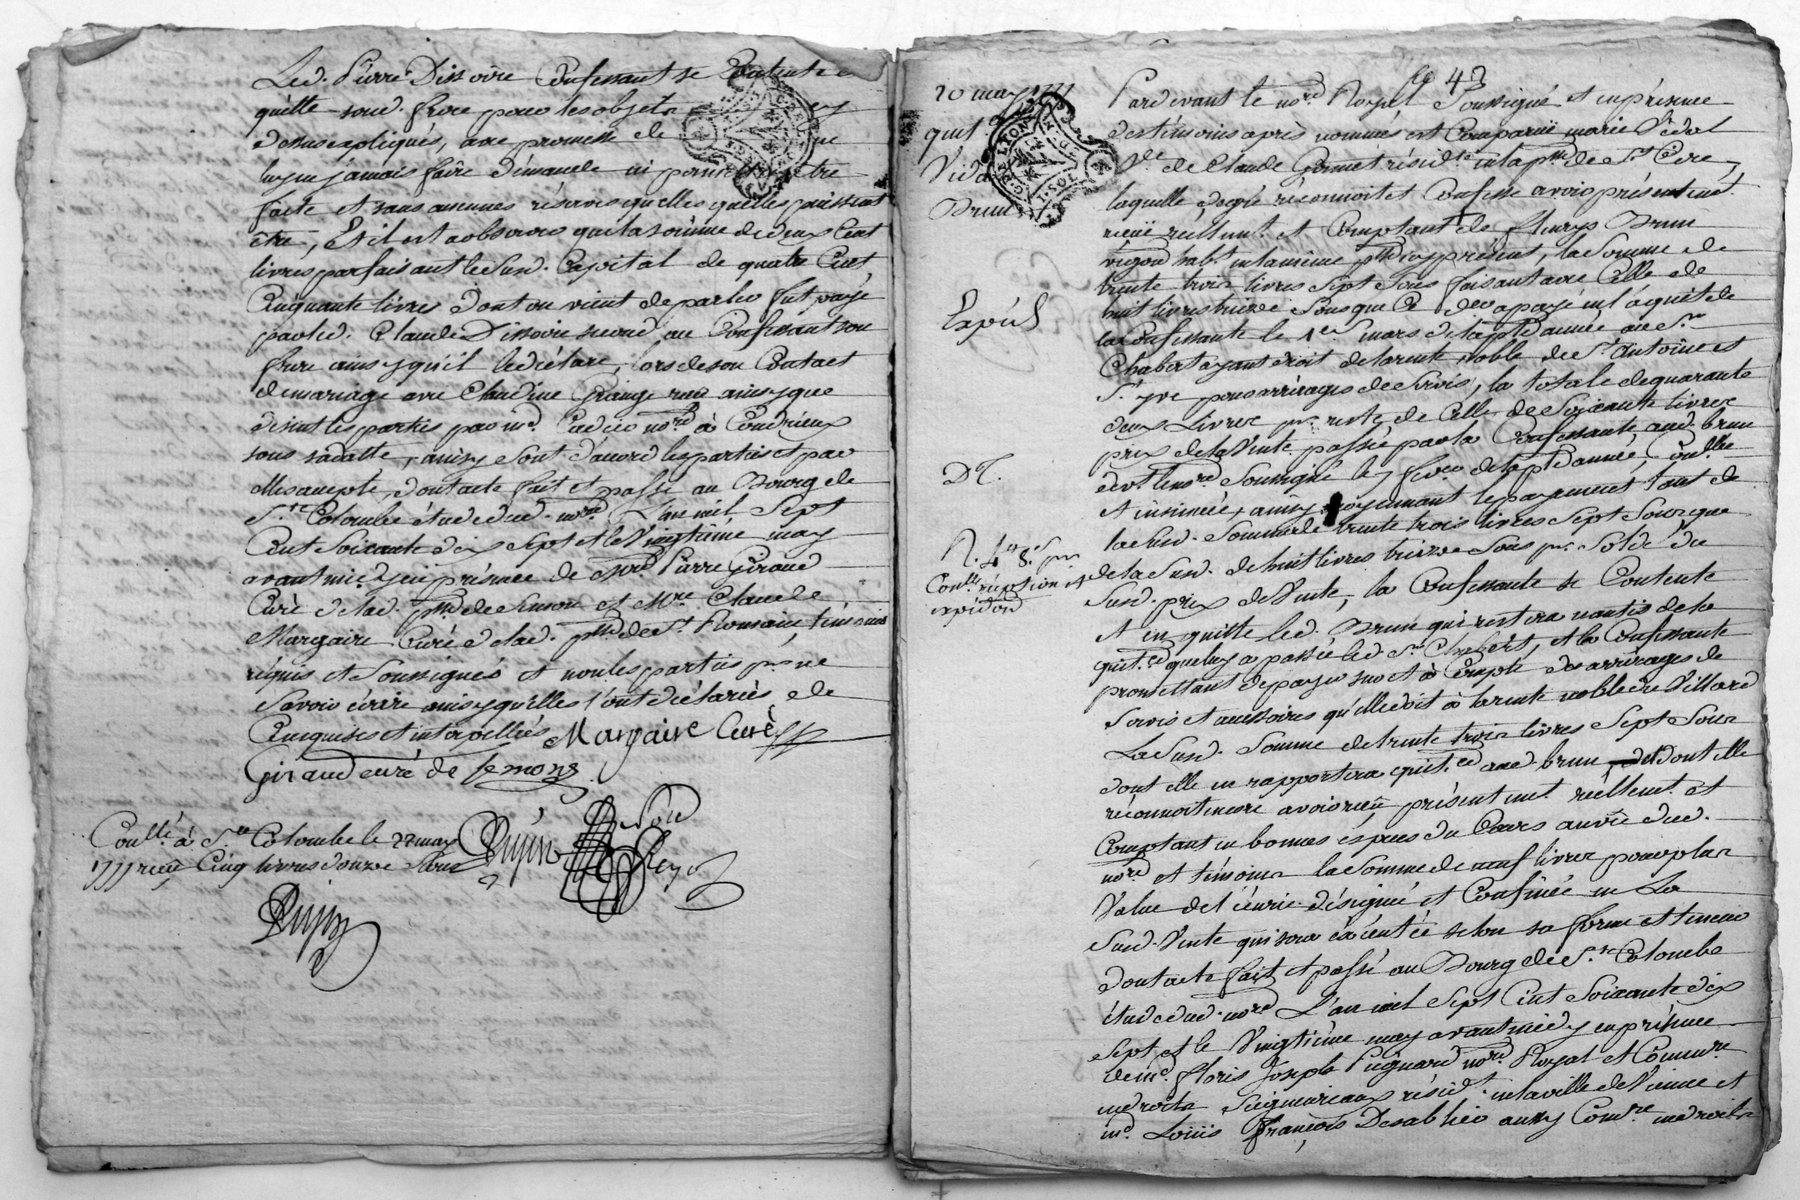 Led. Pierre Dissoire Confessant se Contente
quitte sond. frere pour les objets
dessus expliqués, avec promesse de
luy ne jamais faire demande ni permettre être
faite et sans aucunes réserves quelles quelles puissent
être, Et il est a observer que la somme de deux Cent
livres parfaisant le Susd. Capital de quatre Cent
Cinquante livres dont on vient de parler fut payé
par led. Claude Dissoire second au Confessant son
frere ainsy qu'il le déclare, lors de son Contact
de mariage avec Claudine Grange reçu ainsy que
disent les parties par me. Cadier nore à Condrieux
sous sa datte, ainsy sont d'accord les parties et par
elles accepté, dont acte fait et passé au Bourg de
Ste Colombe étude dud. nore L'an mil Sept
Cent Soixante dix Sept et le Vingtième may
avant midy en présence de Mre Pierre Giraud
Curé de lad. psse de Simon et Mre Claude
Margaire Curé de lad. psse de St Romain témoins
réquis et Soussignés et non les parties pr ne
Savoir écrire ainsy quelles l'ont déclarées de
Ce enquises et interpellées Margaire Curé
Giraud curé de semons
Conllé à Ste Colombe le 22 may
1777 reçu Cinq livres douze Sous
Dujin
Dujin
10 may 1777
quitce
Vida
Brun
Expédié
Dt.
R. 4ll 8s pr
Conlle réception et
expédon
fo 42
Pardevant le nore Royal Soussigné et en présence
des témoins après nommés est Comparuë marie Vidal
Ve de Claude Gonnet résidte en la psse de St Cire
laquelle de gré réconnoit et Confesse avoir présentemt
reçu réellemt et Comptant de fleurys Brun
vigon habt en la même psse icy présent, la Somme de
trente trois livres Sept Sous faisant avec Celle de
huit livres treize Sous que Ce der a payé en l'aquit de
la Confessante le 1er mars de la pte année au Sr
Chabert ayant droit de la rente noble de St Antoine et
St yve pour arrérages de Servis, la totale de quarante
deux Livres pr reste de Celle de Soixante livres
prix de la Vente passée par la Confessante aud. brun
devt le nore Soussigné le 7 fevr de la pte année, Conllée
et insinuée, ainsy moyennant le payement tant de
la Susd. Somme de trente trois livres Sept Sous que
de la Susd. de huit livres treize Sous pr Solde du
Susd. prix de Vente, la Confessante se Contente
et en quitte led. Brun qui restera nantis de la
quitce que luy a passée led Sr Chabert, et la Confessante
promettant de payer sur et à Compte des arrérages de
Servis et accessoires qu'elle doit à la rente noble du Villard
La Susd. Somme de trente trois livres Sept Sous
dont elle en rapportera quitce aud brun dont elle
réconnoit encore avoir reçu présentemt réellemt et
Comptant en bonnes espèces du Cours au vû dud.
nore et témoins la Somme de neuf livres pour plus
Value de l'écurie désignée et Confinée en La
Susd. Vente qui sera éxécutée selon sa forme et teneur
dont acte fait et passé au Bourg de Ste Colombe
étude dud. nore L'an mil Sept Cent Soixante dix
Sept et le Vingtième may avant midy en présence
de me. floris Joseph Pugnard nore Royal et Commre
en droits Seigneuriaux résidt en la ville de Vienne et
me. Louis françois Desablier aussy Commre en droits